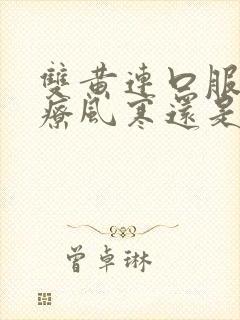 雙黃連口服
療風寒還是
曾卓琳